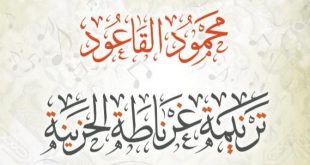 محمود القاعود
ترنيمة غرناطة الحزينة